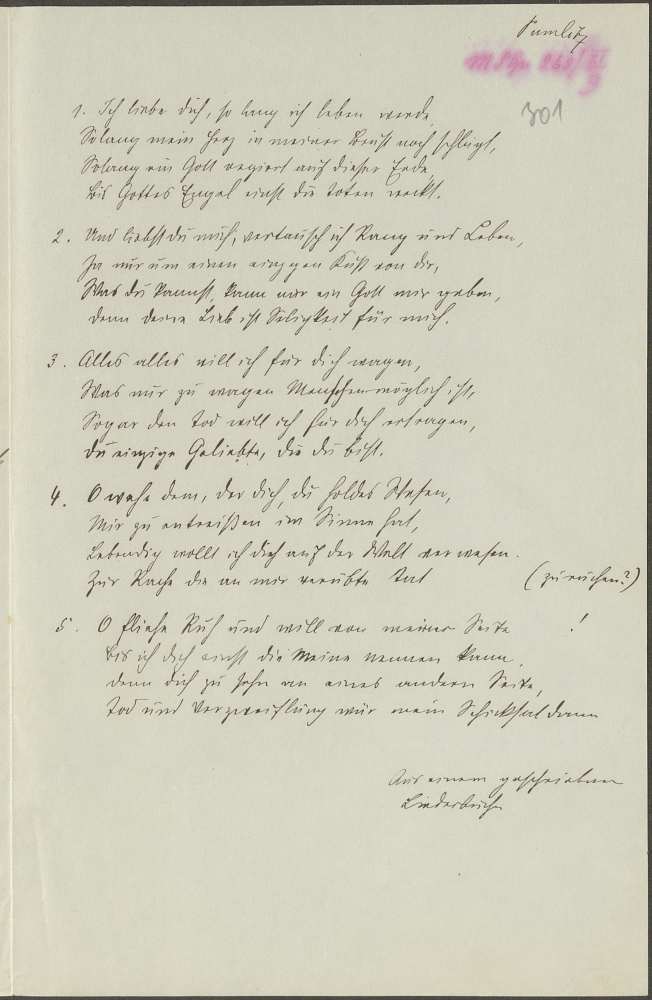 Pumlitz
301
1. Ich liebe dich, so lang ich leben werde,
Solang mein Herz in meiner Brust noch schlägt,
Solang ein Gott regiert auf dieser Erde,
Bis Gottes Engel einst die toten weckt.
2. Und liebst du mich, vertausch ich Rang und Leben,
Ja nur um einen einzgen Kuß von dir,
Was du kannst, kann nur ein Gott mir geben,
denn deine Lieb ist Seligkeit für mich.
3. Alles alles will ich für dich wagen,
Was nur zu wagen Menschenmöglich ist,
Sogar den Tod will ich für dich ertragen,
du einzige Geliebte, die du bist.
4. O wehe dem, der dich, du holdes Wesen,
Mir zu entreißen im Sinne hat,
Lebendig wollt ich dich auf der Welt verwesen.
Zur Rache die an mir verübte tat (zu rächen?)
5. O fliehe Ruh und will von meiner Seite !
Bis ich dich einst die Meine nennen kann,
denn dich zu sehn an eines andern Seite,
Tod und Verzweiflung wär mein Schicksal dann
Aus einem geschriebenen
Liederbuche